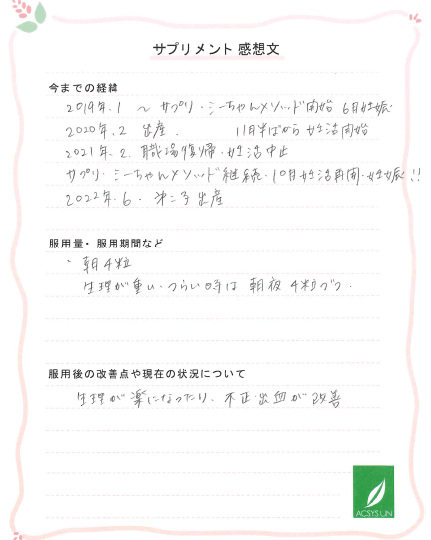 サプリメント 感想文
今までの経緯
2019年.1 ～ サプリ・ミーちゃんメソッド開始 6月妊娠
2020年.2 出産. 11月半ばから 妊活開始
2021年.2. 職場復帰・妊活中止
サプリ・ミーちゃんメソッド継続・10月妊活再開・妊娠!!
2022年.6. 第二子出産
服用量・服用期間など
・朝4粒
生理が重い・つらい時は 朝夜 4粒づつ.
服用後の改善点や現在の状況について
生理が楽になったり、不正出血が改善
ACSYS UN